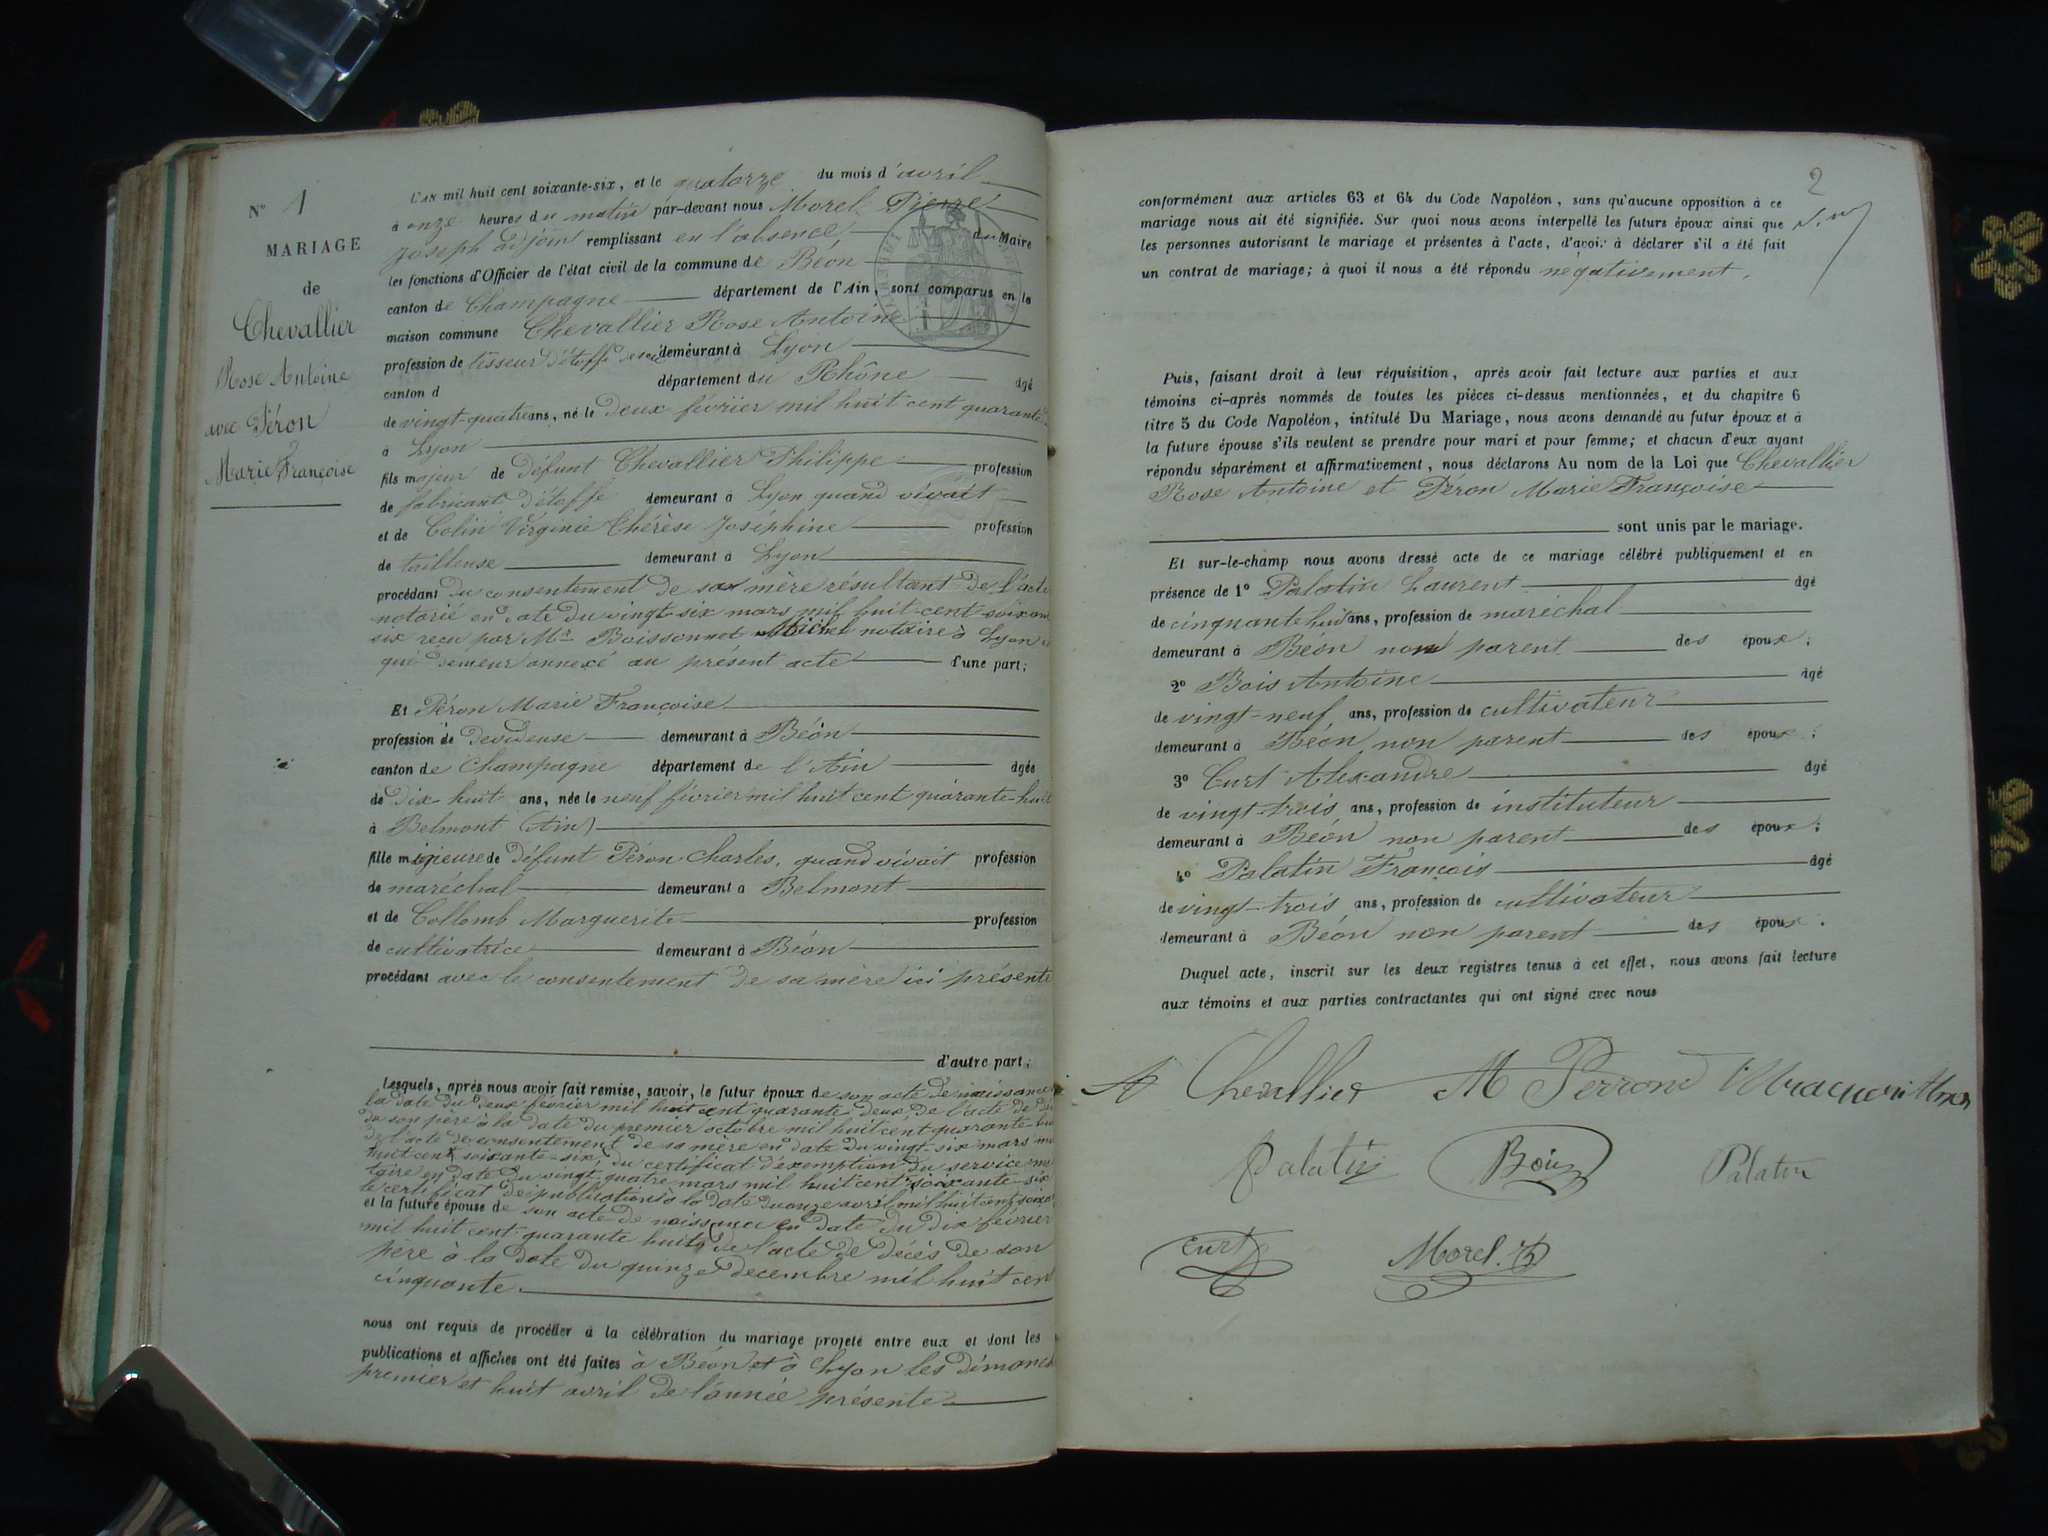 N° 1
MARIAGE
de
Chevallier
Rose Antoine
avec Péron
Marie Françoise
L'AN mil huit cent soixante-six, et le quatorze du mois d'avril
à onze heures du matin par-devant nous Morel Pierre
Joseph adjoint remplissant en l'absence du Maire
les fonctions d'Officier de l'état civil de la commune de Béon
canton de Champagne département de l'Ain, sont comparus en la
maison commune Chevallier Rose Antoine
profession de tisseur d'étoffe de soie demeurant à Lyon
canton d département du Rhône âgé
de vingt-quatre ans, né le deux février mil huit cent quarante
à Lyon
fils majeur de défunt Chevallier Philippe profession
de fabricant d'étoffe demeurant à Lyon quand vivait
et de Colin Virginie Thérèse Joséphine profession
de tailleuse demeurant à Lyon
procédant du consentement de sa mère résultant de l'acte
notarié en date du vingt-six mars mil huit-cent-soixan
six reçu par Me Boissonnet Michel notaire à Lyon
qui demeur annexé au présent acte d'une part;
Et Péron Marie Françoise
profession de devideuse demeurant à Béon
canton de Champagne département de l'Ain âgée
de dix huit ans, née le neuf février mil huit cent quarante-huit
à Belmont (Ain)
fille mineure de défunt Péron Charles, quand vivait profession
de maréchal demeurant à Belmont
et de Collomb Marguerite profession
de cultivatrice demeurant à Béon
procédant avec le consentement de sa mère ici présente
d'autre part;
Lesquels, après nous avoir fait remise, savoir, le futur époux de son acte de naissance
la date du deux février mil huit cent quarante deux de l'acte de dé
de son père à la date du premier octobre mil huit cent quarante-
de l'acte de consentement de sa mère en date du vingt-six mars mil
huit cent soixante-six, du certificat d'exemption du service mi
taire en date du vingt-quatre mars mil huit cent soixante-six
le certificat de publications à la date du onze avril mil huit cent soixa
et la future épouse de son acte de naissance en date du dix février
mil huit cent quarante huit, de l'acte de décès de son
père à la date du quinze decembre mil huit cent
cinquante.
nous ont requis de procéder à la célébration du mariage projeté entre eux et dont les
publications et affiches ont été faites à Béon et à Lyon les dimanch
premier et huit avril de l'année présente
2
conformément aux articles 63 et 64 du Code Napoléon, sans qu'aucune opposition à ce
mariage nous ait été signifiée. Sur quoi nous avons interpellé les futurs époux ainsi que
les personnes autorisant le mariage et présentes à l'acte, d'avoir à déclarer s'il a été fait
un contrat de mariage; à quoi il nous a été répondu négativement.
Puis, faisant droit à leur réquisition, après avoir fait lecture aux parties et aux
témoins ci-après nommés de toutes les pièces ci-dessus mentionnées, et du chapitre 6
titre 5 du Code Napoléon, intitulé Du Mariage, nous avons demandé au futur époux et à
la future épouse s'ils veulent se prendre pour mari et pour femme; et chacun d'eux ayant
répondu séparément et affirmativement, nous déclarons Au nom de la Loi que Chevallier
Rose Antoine et Péron Marie Françoise
sont unis par le mariage.
Et sur-le-champ nous avons dressé acte de ce mariage célébré publiquement et en
présence de 1° Palatin Laurent âgé
de cinquante huit ans, profession de maréchal
demeurant à Béon non parent des époux;
2° Bois Antoine âgé
de vingt-neuf ans, profession de cultivateur
demeurant à Béon non parent des époux;
3° Curt Alexandre âgé
de vingt-trois ans, profession de instituteur
demeurant à Béon non parent des époux;
4° Palatin François âgé
de vingt-trois ans, profession de cultivateur
demeurant à Béon non parent des époux.
Duquel acte, inscrit sur les deux registres tenus à cet effet, nous avons fait lecture
aux témoins et aux parties contractantes qui ont signé avec nous
A Chevallier M Perrond
Palatin Bois Palatin
Curt Morel